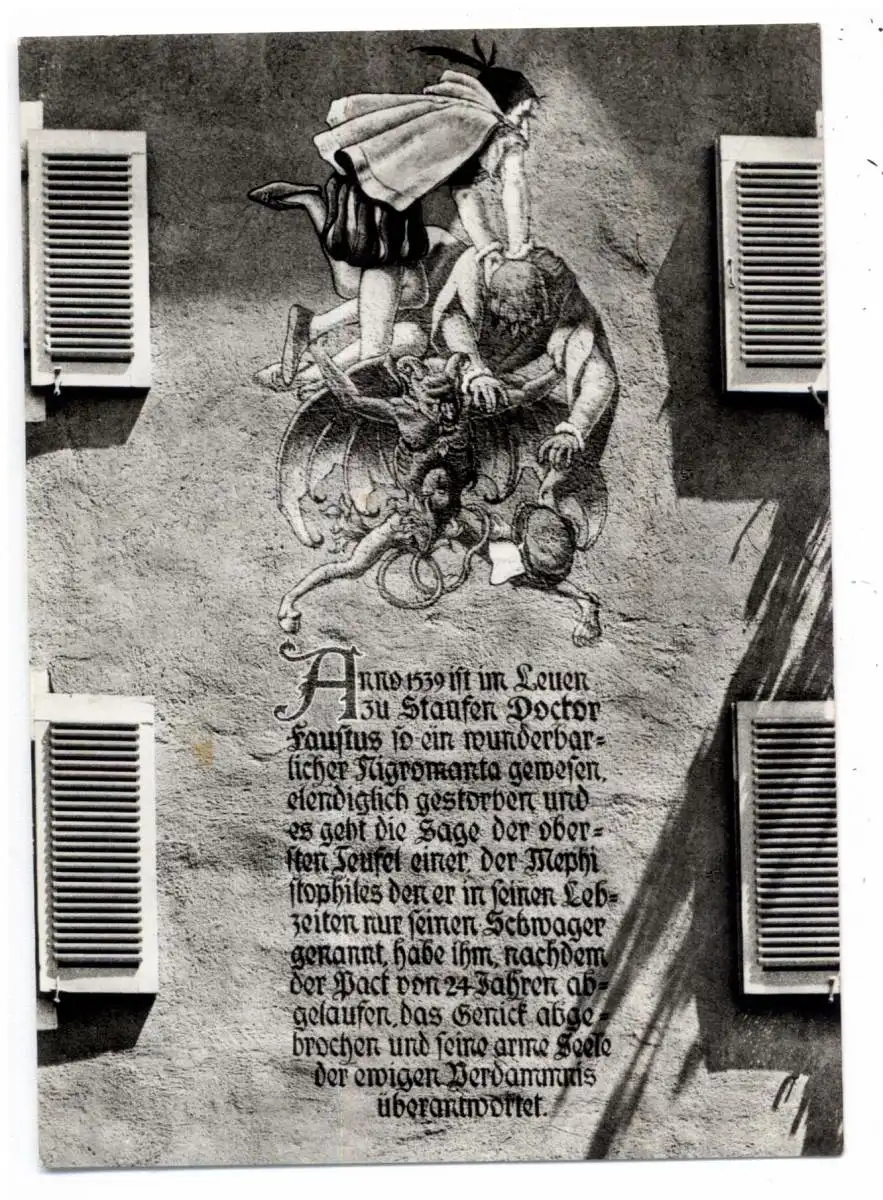 Anno 1539 ist im Leuen
zu Staufen Doctor
Faustus so ein wunderbar=
licher Nigromanta gewesen,
elendiglich gestorben und
es geht die Sage der ober=
sten Teufel einer, der Mephi
stophiles den er in seinen Leb=
zeiten nur seinen Schwager
genannt, habe ihm, nachdem
der Pact von 24 Jahren ab=
gelaufen, das Genick abge=
brochen und seine arme Seele
der ewigen Verdammnis
überantwortet.